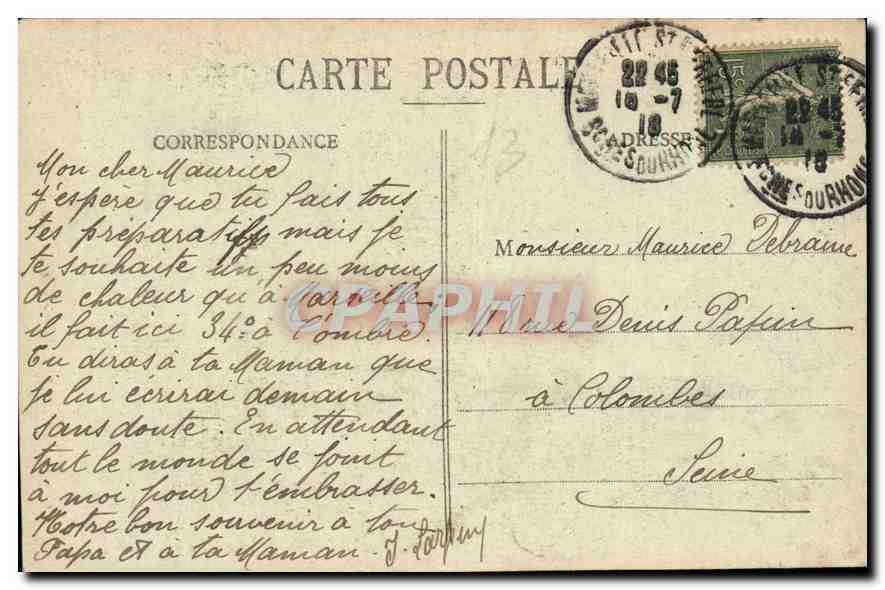 CARTE POSTALE
CORRESPONDANCE
ADRESSE
13
22 45
10 -7
18
BCHES DU RHONE
22 45
18
BCHES DU RHONE
15c
Mon cher Maurice
J'espère que tu fais tous
tes préparatifs mais je
te souhaite un peu moins
de chaleur qu'à Marseille;
il fait ici 34° à l'ombre.
Tu diras à ta Maman que
je lui écrirai demain
sans doute. En attendant
tout le monde se joint
à moi pour t'embrasser.
Notre bon souvenir à ton
Papa et à ta Maman.
Monsieur Maurice Debraine
rue Denis Papin
à Colombes
Seine
CPAPHIL